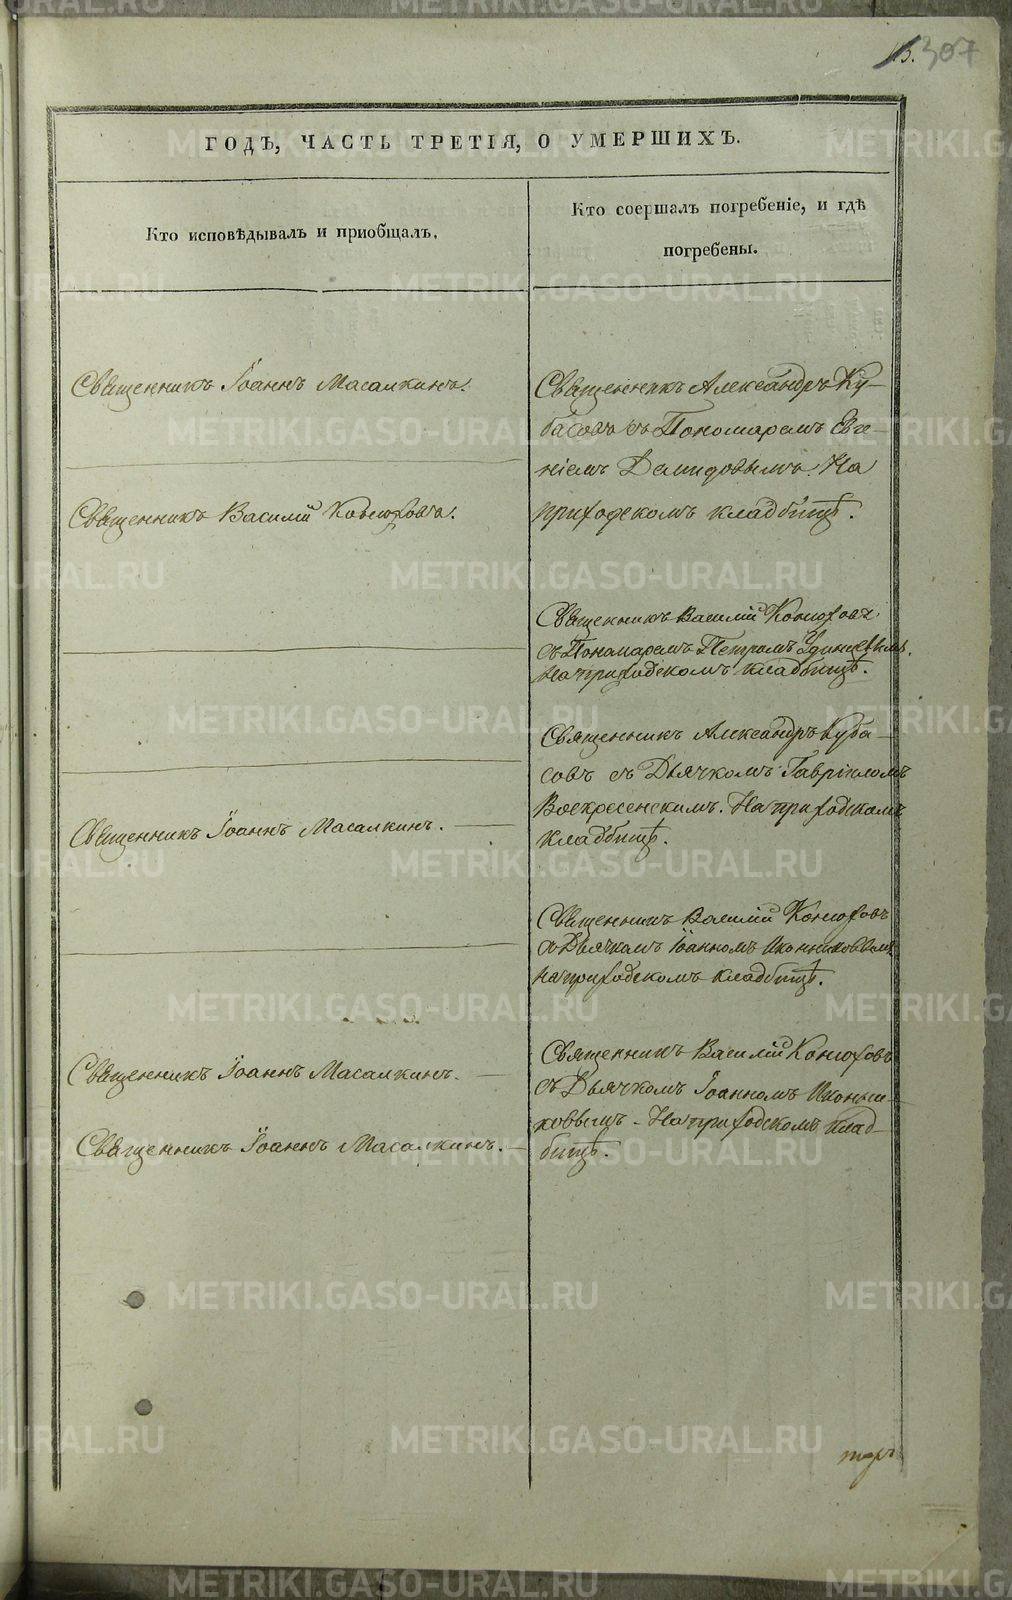 13. 307
ГОДЪ, ЧАСТЬ ТРЕТІЯ, О УМЕРШИХЪ.
Кто исповѣдывалъ и приобщалъ.
Кто соершалъ погребеніе, и гдѣ
погребены.
Священникъ Іоаннъ Масалкинъ.
Священникъ Василій Конюховъ.
Священникъ Іоаннъ Масалкинъ.
Священникъ Іоаннъ Масалкинъ.
Священникъ Іоаннъ Масалкинъ.
Священникъ Александръ Ку-
басовъ съ Пономаремъ Евге-
ніемъ Демидовымъ. На
приходскомъ кладбищѣ.
Священникъ Василій Конюховъ
съ Пономаремъ Петромъ
На приходскомъ кладбищѣ.
Священникъ Александръ Куба-
совъ съ Дьячкомъ Гавріиломъ
Воскресенскимъ. На приходскомъ
кладбищѣ.
Священникъ Василій Конюховъ
съ Дьячкомъ Іоанномъ Иконниковымъ
На приходскомъ кладбищѣ.
Священникъ Василій Конюховъ
съ Дьячкомъ Іоанномъ Иконни-
ковымъ. На приходскомъ клад-
бищѣ.
METRIKI.GASO-URAL.RU